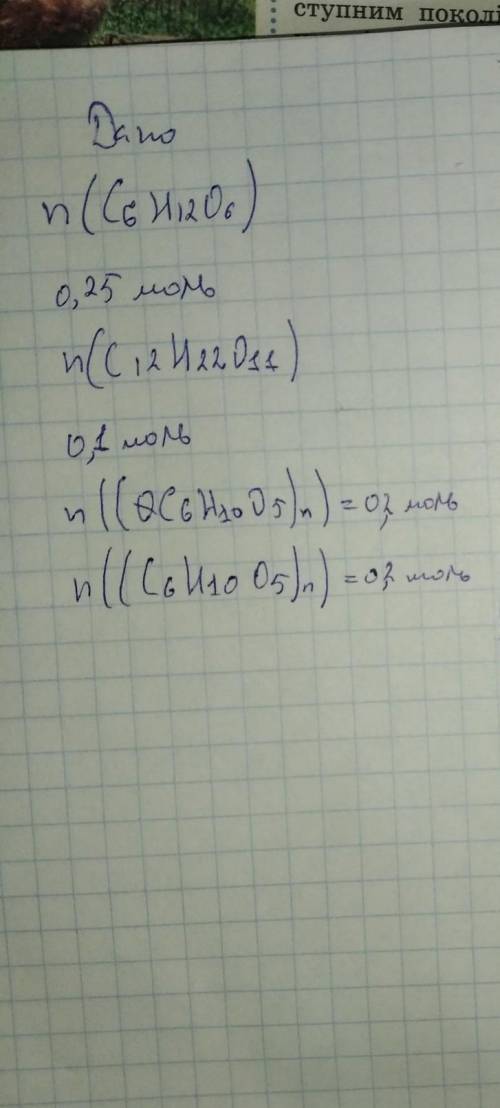 ступним поколі
Дано
n(C₆H₁₂O₆)
0,25 моль
n(C₁₂H₂₂O₁₁)
0,1 моль
n((C₆H₁₀O₅)ₙ) = моль
n((C₆H₁₀O₅)ₙ) = моль